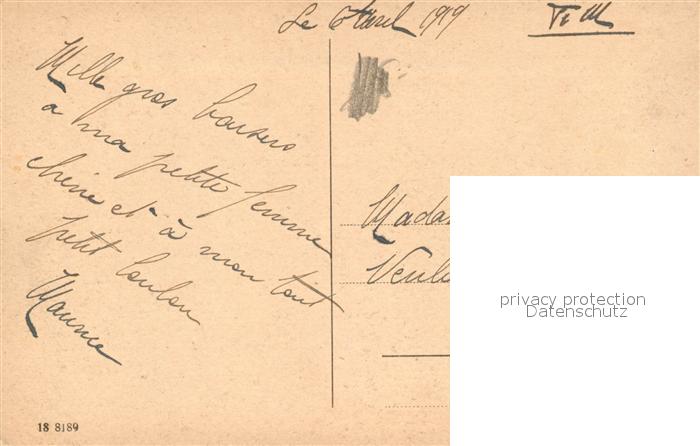 Le 6 Avril 1919
F. M
Mille gros baisers
a ma petite femme
chérie et à mon tout
petit loulou
Maurice
Madam
Veul
privacy protection
Datenschutz
18 8189